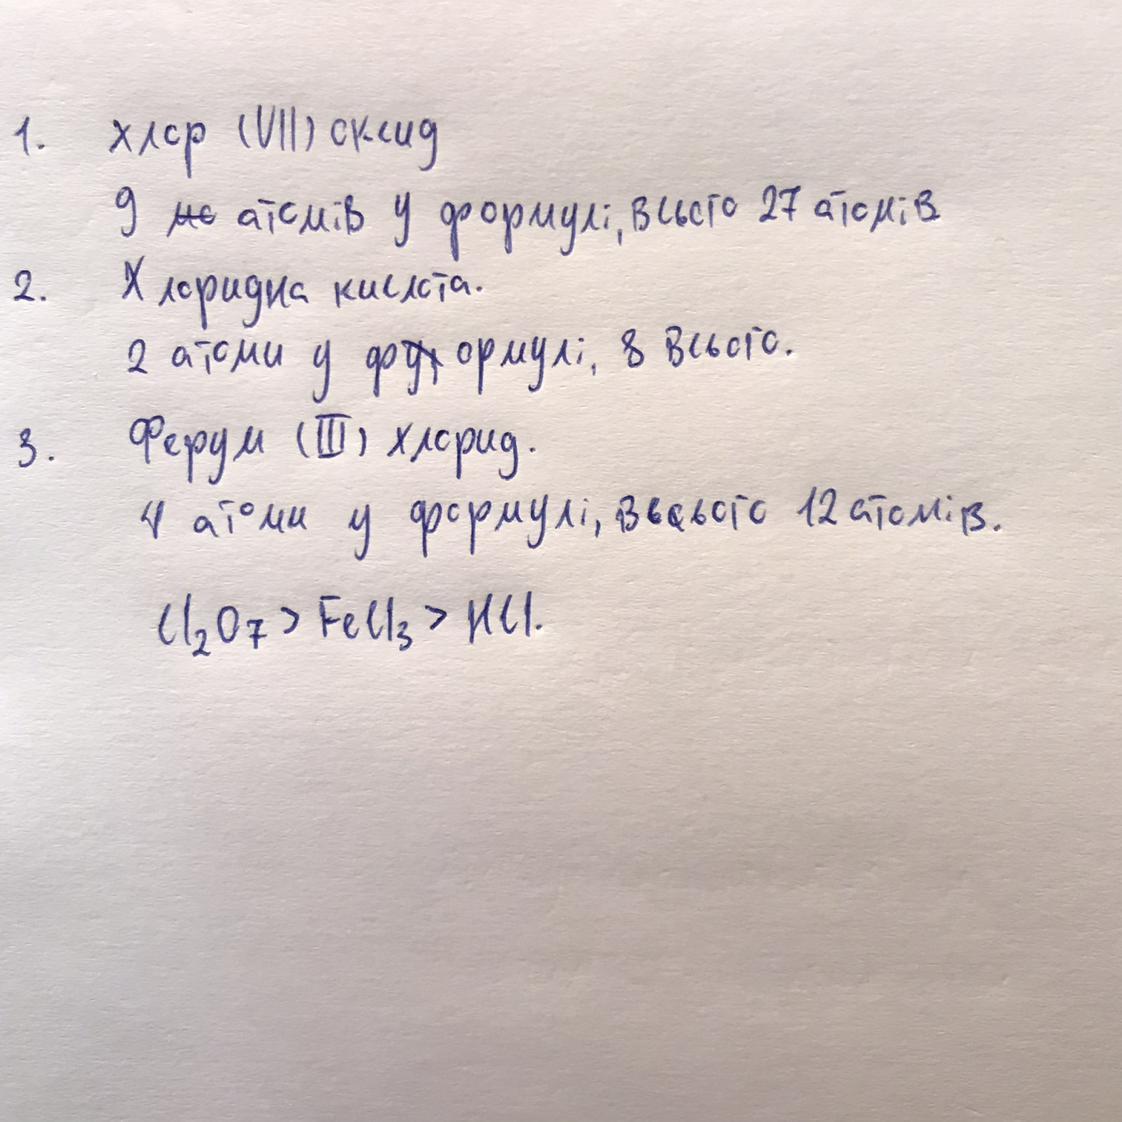 1. хлор (VII) оксид
9 атомів у формулі, всього 27 атомів
2. Хлоридна кислота.
2 атоми у формулі, 8 всього.
3. Ферум (III) хлорид.
4 атоми у формулі, всього 12 атомів.
Cl₂O₇ > FeCl₃ > HCl.